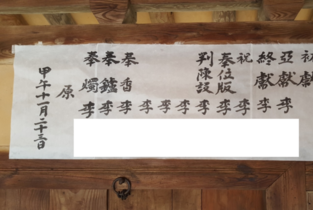 初
亞獻 李
終獻 李
祝 李
奉位版 李
判陳設 李
李
李
李
奉香 李
奉鑪 李
奉燭 李
原
甲午十一月二十三日